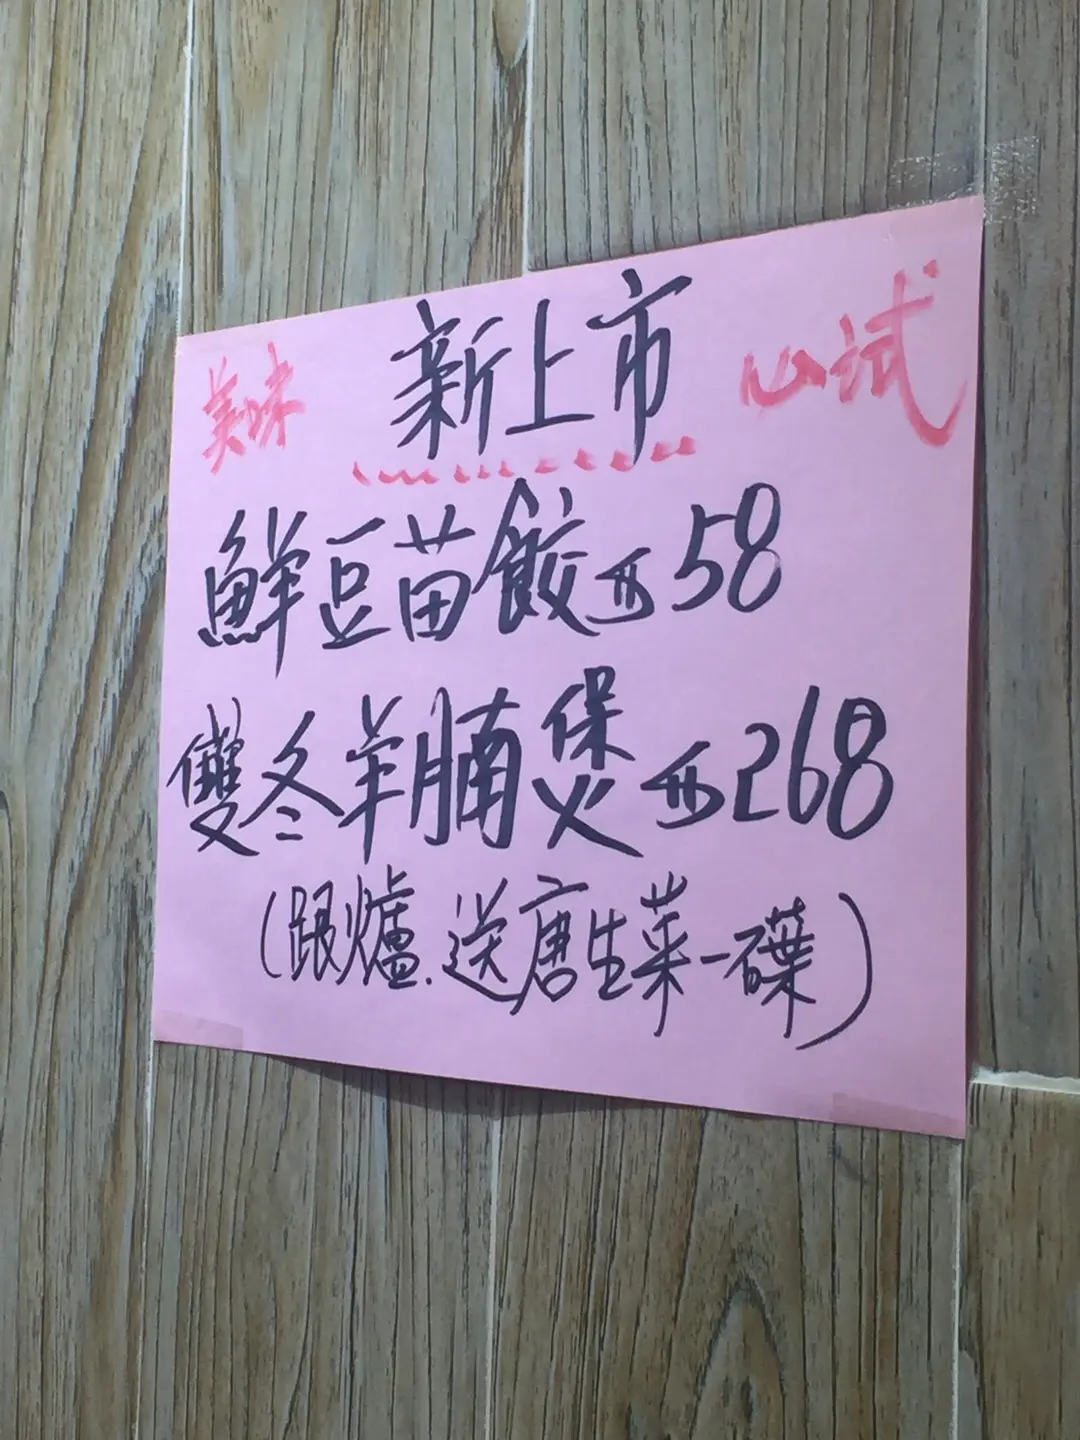 美味 新上市 必试
鮮豆苗餃 $58
雙冬羊腩煲 $268
(跟爐.送唐生菜一碟)